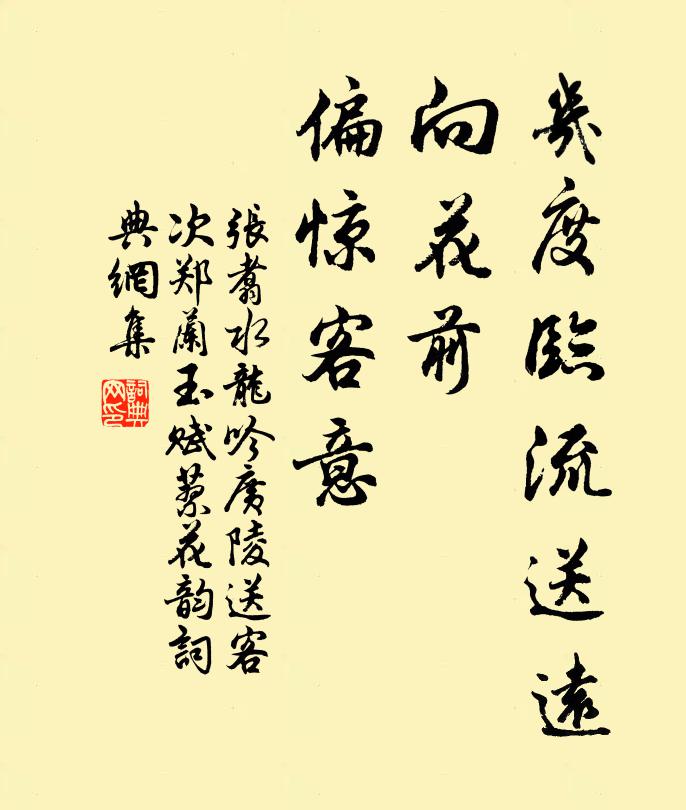 幾度臨流送遠
向花前
偏惊客意
張翥水龍吟廣陵送客
次郑蘭玉赋蓼花韵詞
典網集
詞典
网印